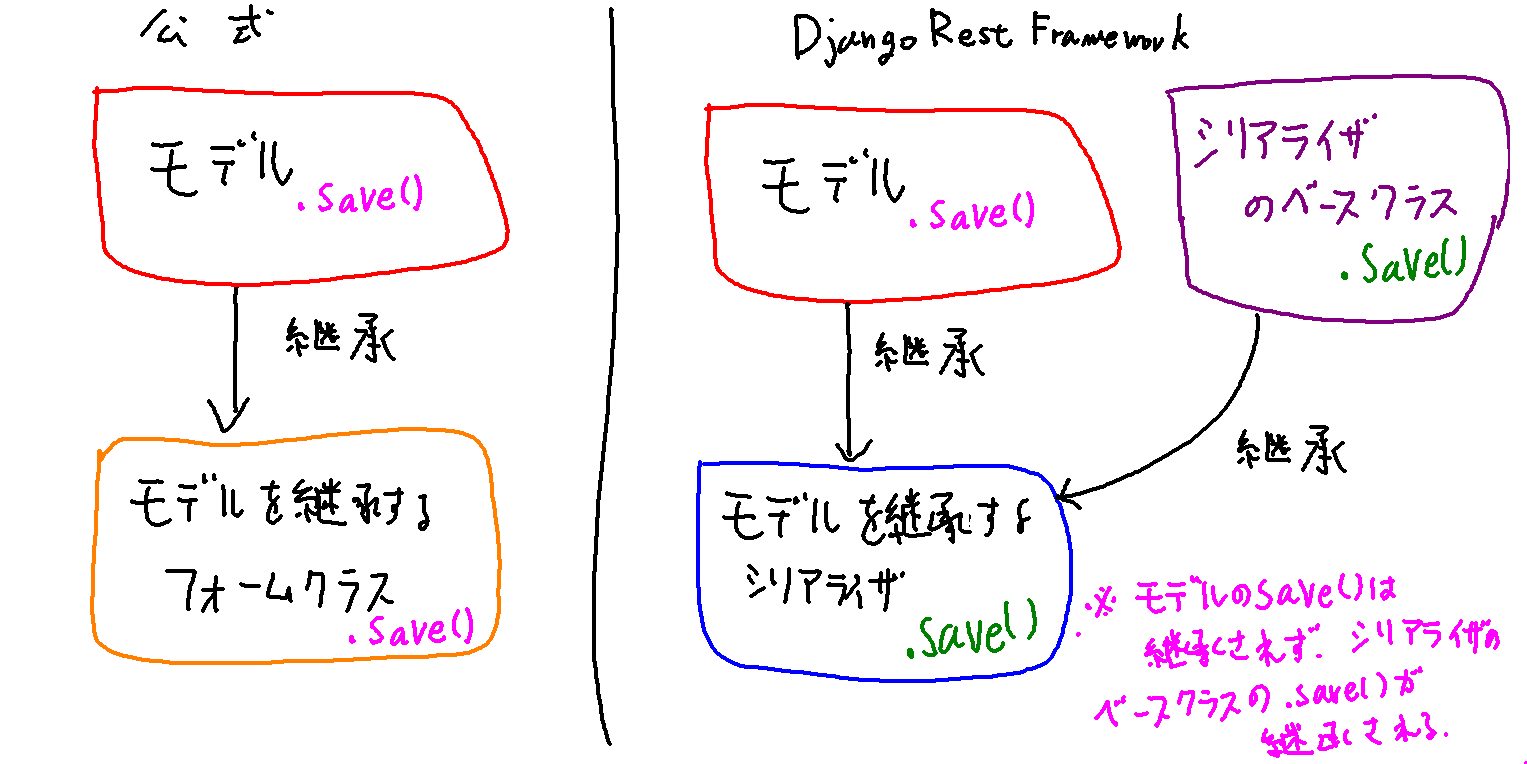 公式
モデル
.save()
継承
モデルを継承する
フォームクラス
.save()
Django Rest Framework
モデル
.save()
シリアライザ
のベースクラス
.save()
継承
継承
モデルを継承する
シリアライザ
.save()
※ モデルのsave()は
継承されず、シリアライザの
ベースクラスの.save()が
継承される.